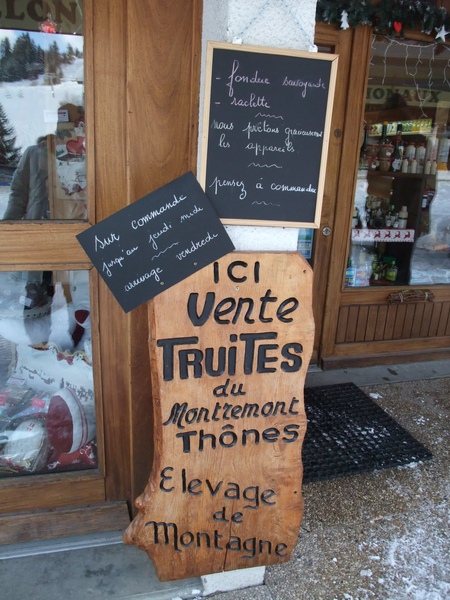 - fondue savoyarde
- raclette
nous prêtons gracieusement
les appareils
pensez à commander
Sur commande
jusqu'au jeudi midi
arrivage vendredi
ICI
Vente
TRUITES
du
Montremont
Thônes
Elevage
de
Montagne